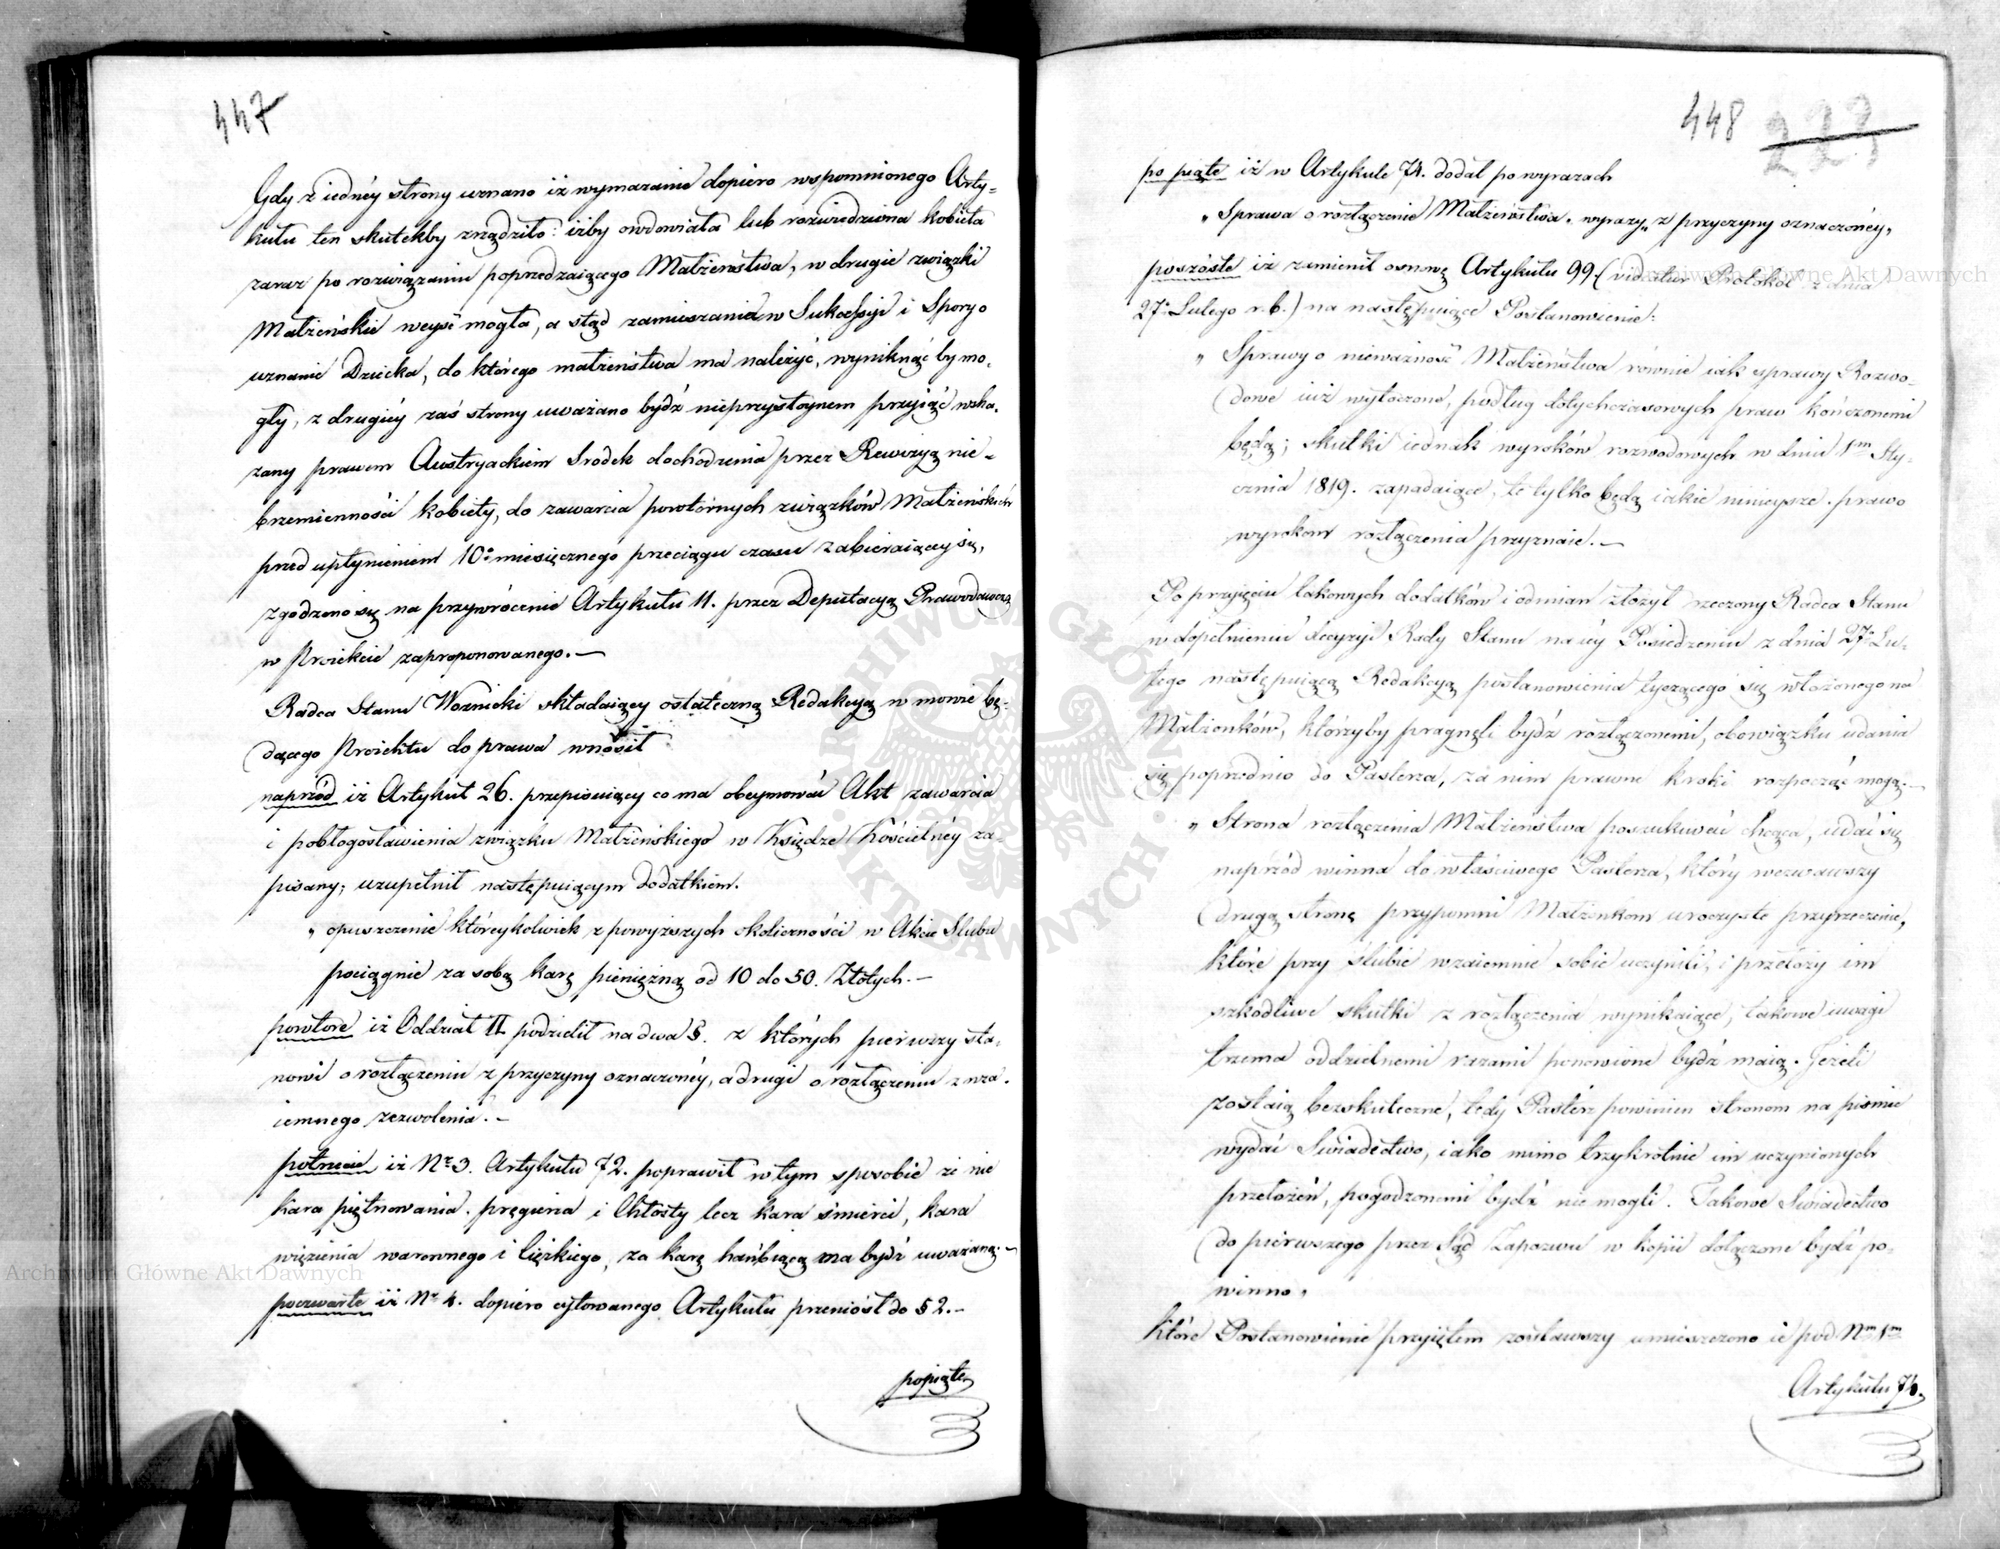 447
Gdy z iednéy strony uznano iż wymazanie dopiero wspomnionego Arty-
kułu ten skutekby zrządziło: iżby owdowiała lub rozwiedziona kobieta
zaraz po rozwiązaniu poprzedzaiącego Małżeństwa, w drugie związki
Małżeńskie weyść mogła, a stąd zamieszania w Sukcessyi i Spory o
uznanie Dziecka, do którego małżeństwa ma należyć, wyniknąć by mo-
gły, z drugiéy zaś strony uważano bydź nieprzystoynem przyiąć wska-
zany prawem Austryackiem Srodek dochodzenia przez Rewizyą nie-
brzemienności kobiety, do zawarcia powtórnych związków Małżeńskich
przed upłynieniem 10o miesięcznego przeciągu czasu zabieraiącey się,
zgodzono się na przywrócenie Artykułu 11. przez Deputacyą Prawodawczą
w Proiekcie zaproponowanego.—
Radca Stanu Woznicki składaiący ostateczną Redakcyą w mowie bę-
dącego Proiektu do prawa wnosił
naprzód iż Artykuł 26. przepisuiący co ma obeymować Akt zawarcia
i pobłogosławienia związku Małżeńskiego w Księdze Kościelnéy za-
pisany; uzupełnił następuiącym dodatkiem.
„ opuszczenie któreykolwiek z powyższych okoliczności w Akcie Slubu
pociągnie za sobą karę pieniężną od 10 do 50. Złotych.—
powtóre iż Oddział II podzielił na dwa §. z których pierwszy sta-
nowi o rozłączeniu z przyczyny oznaczonéy, a drugi o rozłączeniu z wza-
iemnego zezwolenia.—
potrzecie iż Nr 3. Artykułu 72. poprawił w tym sposobie że nie
kara piętnowania. pręgierza i Chłosty lecz kara śmierci, kara
więzienia warownego i Ciężkiego, za karę hańbiącą ma bydź uważaną.—
poczwarte iż Nr 4. dopiero cytowanego Artykułu przeniósł do § 2.—
popiąte
448
223
po piąte iż w Artykule 74. dodał po wyrazach
„ Sprawa o rozłączenie Małżeństwa „ wyrazy „ z przyczyny oznaczonéy „
poszóste iż zmienił osnowę Artykułu 99. (videatur Protokół z dnia
27o Lutego r. b.) na następuiące Postanowienie:
„ Sprawy o nieważność Małżeństwa równie iak sprawy Rozwo-
dowe iuż wytoczone, podług dotychczasowych praw kończonemi
będą; skutki iednak wyroków rozwodowych w dniu 1m Sty-
cznia 1819. zapadaiące, te tylko będą iakie ninieysze prawo
wyrokom rozłączenia przyznaie.—
Po przyięciu takowych dodatków i odmian złożył rzeczony Radca Stanu
w dopełnieniu decyzyi Rady Stanu na iéy Posiedzeniu z dnia 27o Lu-
tego następuiącą Redakcyą postanowienia tyczącego się włożonego na
Małżonków, którzyby pragnęli bydź rozłączonemi, obowiązku udania
się poprzednio do Pasterza, za nim prawne kroki rozpocząć mogą.—
„ Strona rozłączenia Małżeństwa poszukiwać chcąca, udać się
naprzód winna do właściwego Pasterza, który wezwawszy
drugą stronę przypomni Małżonkom uroczyste przyrzeczenie,
które przy ślubie wzaiemnie sobie uczynili, i przełoży im
szkodliwe skutki z rozłączenia wynikaiące, takowe uwagi
trzema oddzielnemi razami ponowione bydź maią. Jeżeli
zostaią bezskuteczne, tedy Pasterz powinien stronom na piśmie
wydać Swiadectwo, iako mimo trzykrotnie im uczynionych
przełożeń, pogodzonemi bydź nie mogli. Takowe Swiadectwo
do pierwszego przez Sąd Zapozwu w kopii dołączone bydź po-
winno „
które Postanowienie przyiętem zostawszy umieszczono ie pod Nm 1m
Artykułu 74.
Archiwum Główne Akt Dawnych
Archiwum Główne Akt Dawnych
ARCHIWUM GŁÓWNE AKT DAWNYCH